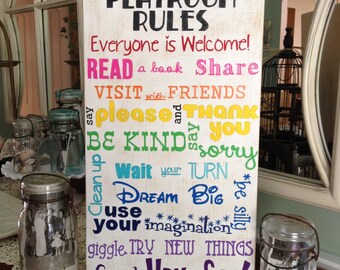 PLAYROOM
RULES
Everyone is Welcome!
READ a book Share
VISIT with FRIENDS
say please and THANK YOU
BE KIND say sorry
Clean up Wait your TURN
DREAM BIG
use your imagination *be silly
giggle TRY NEW THINGS